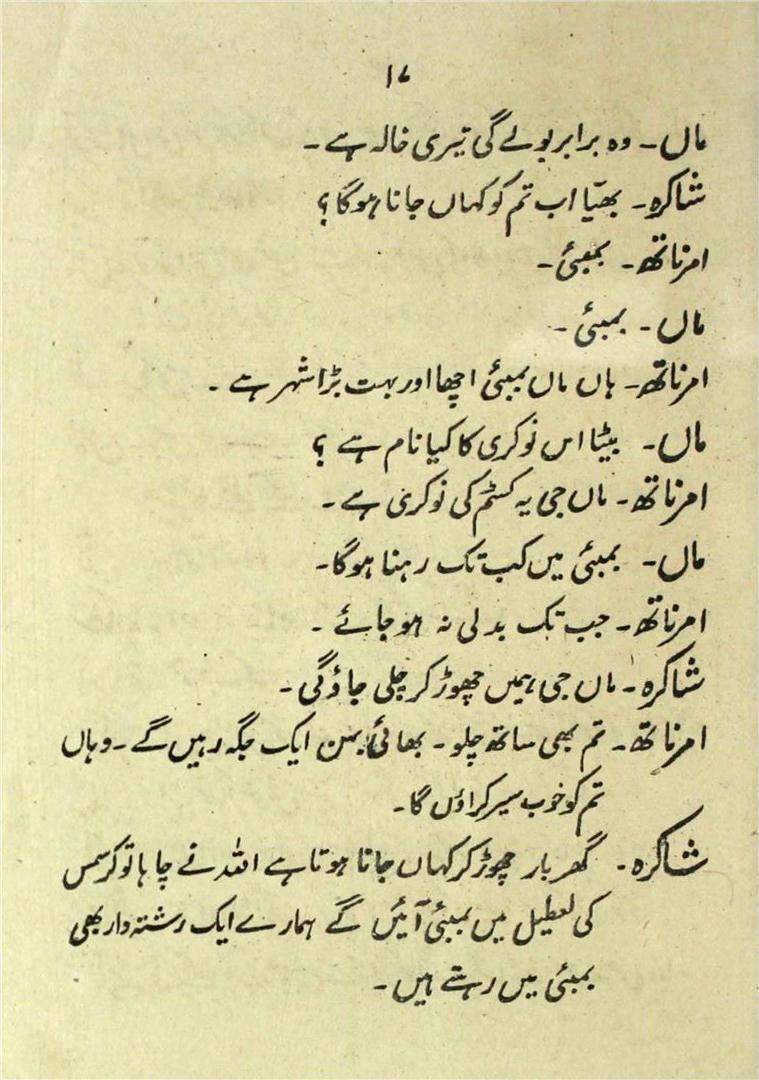 ۱۷
ماں۔ وہ برابر بولے گی تیری خالہ ہے۔
شاکرہ۔ بھیّا اب تم کو کہاں جانا ہوگا؟
امرناتھ۔ بمبئی۔
ماں۔ بمبئی۔
امرناتھ۔ ہاں ماں بمبئی اچھا اور بہت بڑا شہر ہے۔
ماں۔ بیٹا اس نوکری کا کیا نام ہے ؟
امرناتھ۔ ماں جی یہ کسٹم کی نوکری ہے۔
ماں۔ بمبئی میں کب تک رہنا ہوگا۔
امرناتھ۔ جب تک بدلی نہ ہو جائے۔
شاکرہ۔ ماں جی ہمیں چھوڑ کر چلی جاؤگی۔
امرناتھ۔ تم بھی ساتھ چلو۔ بھائی بہن ایک جگہ رہیں گے۔ وہاں
تم کو خوب سیر کراؤں گا۔
شاکرہ۔ گھر بار چھوڑ کر کہاں جانا ہوتا ہے اللہ نے چاہا تو کرسمس
کی تعطیل میں بمبئی آئیں گے ہمارے ایک رشتہ دار بھی
بمبئی میں رہتے ہیں۔